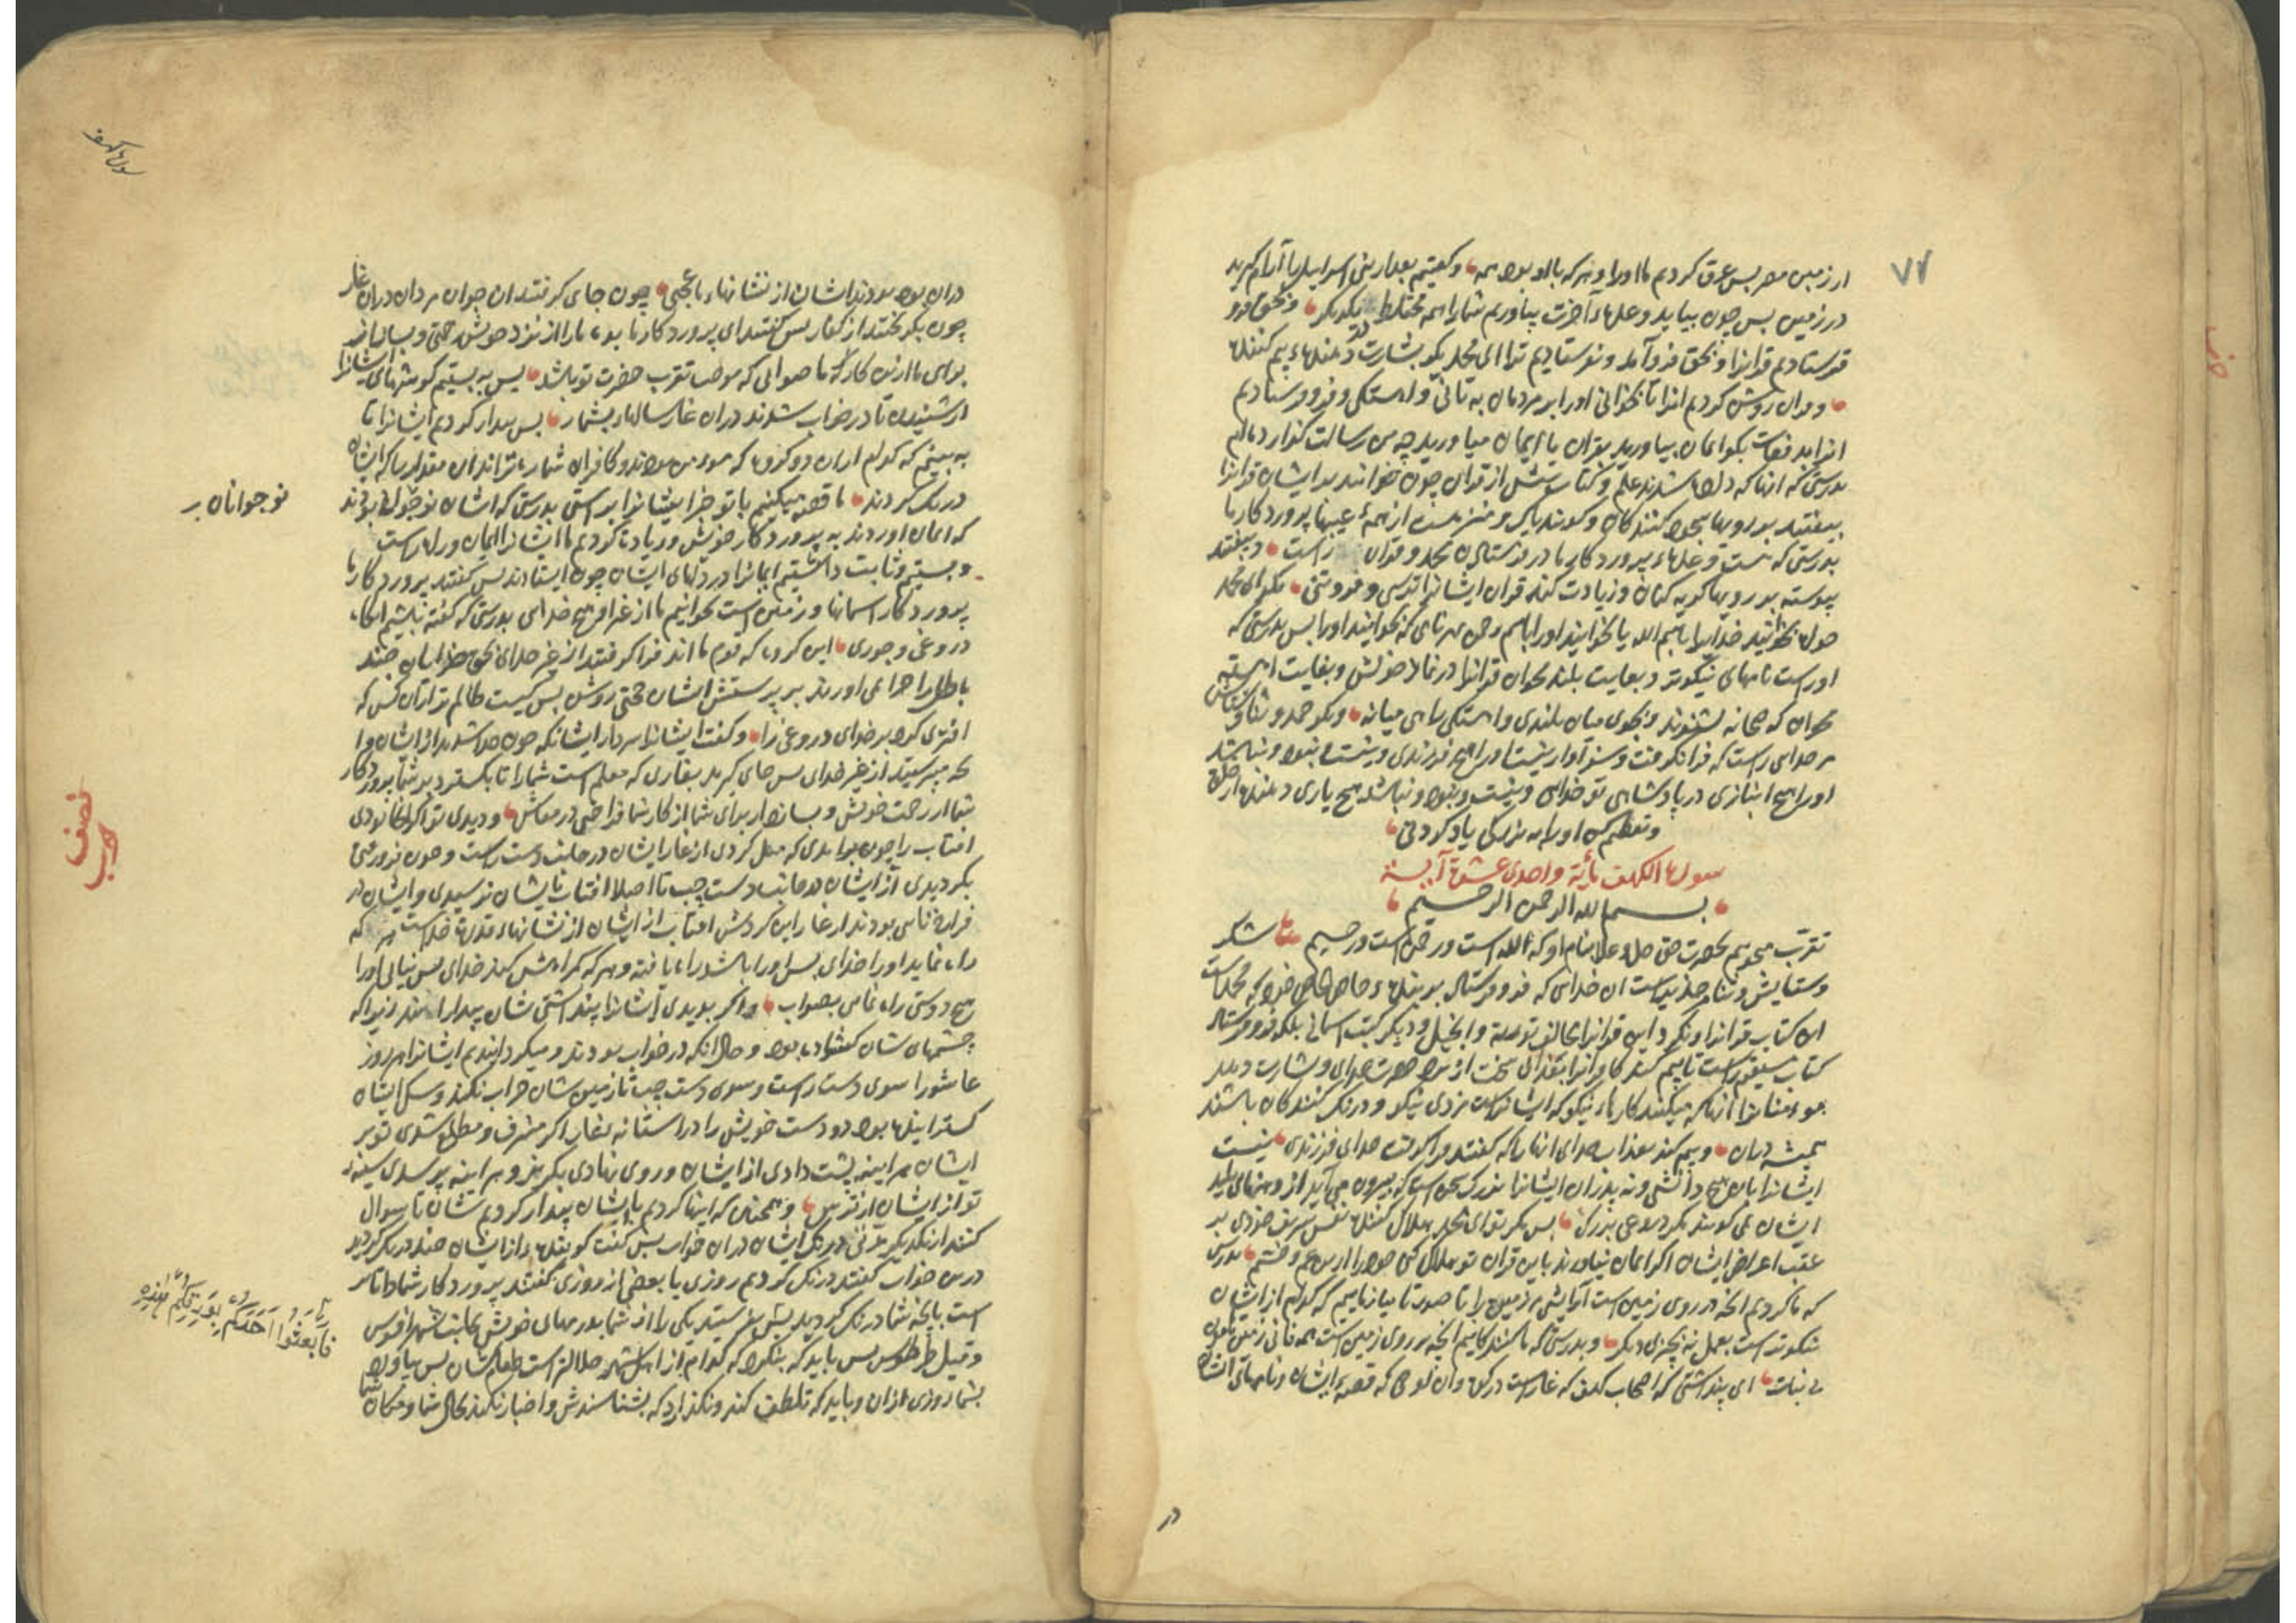 ۷۷
از زمین مصر پس غرق کردیم ما او را و هر که با او بود همه و گفتیم بعد از بنی اسراییل را آرام گیرید
در زمین پس چون بیاید وعده آخرت بیاوریم شما را همه مختلط یکدیگر و بحق فرو
فرستادیم قرآنرا و بحق فرود آمد و نفرستادیم ترا ای محمد بگو بشارت دهنده و بیم کننده
و قرآن روشن کردیم آنرا تا بخوانی او را بر مردمان به تانی و آهستگی و فرو فرستادیم
آنرا بدفعات بگو ایمان بیاورید بقرآن یا ایمان میاورید چه من رسالت گذاردم
بدرستی که آنها که داده شدند علم و کتاب پیش از قرآن چون خوانند بر ایشان قرآنرا
بیفتند بر رویها سجده کنندگان و گویند پاک و منزه است از همه عیبها پروردگار ما
بدرستی که هست وعده پروردگار ما در فرستادن محمد و قرآن راست و بیفتند
پیوسته بر رویها گریه کنان و زیادت کند قرآن ایشانرا ترسی و فروتنی بگو ای محمد
بخوانید خدایرا باسم الله یا بخوانید او را باسم رحمن هر نامی که بخوانید او را پس بدرستی که
او راست نامهای نیکوتر و بغایت بلند مخوان قرآنرا در نماز خویش و بغایت آهسته
مخوان که صحابه نشنوند و بجوی میان بلندی و آهستگی راهی میانه و بگو حمد و ثنا و ستایش
مر خدای راست که فرا نگرفت و سزاوار نیست او را هیچ فرزندی و نیست و نبود و نباشد
او را هیچ انبازی در پادشاهی تو خدایی و نیست و نبود و نباشد هیچ یاری دهنده از خلق
و تعظیم کن او را به بزرگی یاد کردنی
سورة الکهف مائة واحدی عشرة آیة
بسم الله الرحمن الرحیم
تقرب میجویم بحضرت حق جل و علا بنام او که الله است و رحمن است و رحیم شکر
و ستایش و ثنا مر خدایراست آن خدایی که فرو فرستاد بر بنده خاص خود که محمد است
این کتاب قرآنرا و نکرد این قرآنرا مخالف توریة و انجیل و دیگر کتب آسمانی بلکه فرو فرستاد
کتاب مستقیم راست تا بیم کند کافرانرا بعذابی سخت از نزد حضرت خدای و بشارت دهد
مومنانرا آنها که میکنند کارهاء نیکو که ایشانراست مزدی نیکو و درنگ کنندگان باشند
همیشه در آن و بیم کند بعذاب خدای آنها را که گفتند فرا گرفت خدای فرزندی نیست
ایشانرا بآن هیچ دانشی و نه پدران ایشانرا بزرگ سخن است که بیرون می آید از دهنهای پلید
ایشان نمی گویند مگر دروغی بزرگ پس مگر تو ای محمد هلاک کننده نفس شریف خودی بر
عقب اعراض ایشان اگر ایمان نیاورند باین قرآن تو هلاک کنی خود را از بس غم و خشم بدرستی
که ما کردیم آنچه در روی زمین است آرایش مر زمین را تا صورتا بیازماییم که کدام از ایشان
نیکوتر است بعمل نه بچیزی دیگر و بدرستی که ما کننده‌ایم آنچه بر روی زمین است همه فانی زمین هامون
بی نبات ای پنداشتی که اصحاب کهف که غاریست در کوه و آن لوحی که قصه ایشان و نامهای ایشان
در
سورة الکهف
در آن بود بودند ایشان از نشانهاء ما عجبی چون جای گرفتند آن جوان مردان در آن غار
چون بگریختند از کفار پس گفتند ای پروردگار ما بده ما را از نزد خویش رحمتی و بساز
برای ما از این کار که ما صوابی که موجب تقرب حضرت تو باشد پس به بستیم گوشهای ایشانرا
از شنیدن تا در خواب شدند در آن غار سالهاء بشمار پس بیدار کردیم ایشانرا تا
به بینیم که کدام از آن دو گروه که مومن بودند و کافران شمارنده‌تراند آن مقدار را که ایشان
درنگ کردند ما قصه میکنیم با تو خبر ایشانرا براستی بدرستی که ایشان نو جوانان بودند
نو جوانان بر
که ایمان آوردند به پروردگار خویش و زیادت کردیم ما ایشانرا ایمان و راه راست
و بستیم و ثابت داشتیم ایمانرا در دلهای ایشان چون ایستادند پس گفتند پروردگار ما
پروردگار آسمانها و زمین است نخوانیم ما از غیر او هیچ خدایی بدرستی که گفته باشیم آنگاه
دروغی و جوری این گروه که قوم ما اند فرا گرفتند از غیر خدای بحق خدایان چند
باطل را چرا نمی آورند بر پرستش ایشان حجتی روشن پس کیست ظالم تر از آن کس که
افتری کرد بر خدای دروغی را و گفت ایشانرا سردار ایشان که چون جدا شدید از ایشان و از
آنچه میپرستید از غیر خدای پس جای گیرید بغاری که معلم است شما را تا بگسترد بر شما پروردگار
شما از رحمت خویش و بسازد از برای شما از کار شما فراخی در معاش و دیدی تو اگر آنجا بودی
نصف حزب
آفتاب را چون برآمدی که میل کردی از غار ایشان در جانب دست راست و چون فرو رفتی
بگردیدی از ایشان در جانب دست چپ تا اصلا آفتاب بایشان نرسیدی و ایشان در
فراخنایی بودند از غار این گردش آفتاب از ایشان از نشانهاء قدرت خداست هر که
راه نماید او را خدای پس او راست راه یافته و هر که گمراهش کند خدای پس نیابی او را
هیچ دوستی راه نمایی بصواب و اگر بدیدی ایشانرا پنداشتی شان بیدارانند زیرا که
چشمهای شان گشاده بود و حال آنکه در خواب بودند و میگردانیدیم ایشانرا هر روز
عاشورا سوی دست راست و سوی دست چپ تا زمین شان خراب نکند و سگ ایشان
گستراننده بود دو دست خویش را در آستانه بغار اگر مشرف و مطلع شدی تو بر
ایشان هر آینه پشت دادی از ایشان و روی نهادی بگریز و هر آینه پر شدی سینه
تو از ایشان از ترس و همچنین که اینها کردیم بایشان بیدار کردیم شان تا سوال
کنند از یکدیگر مدتی درنگ ایشان در آن خواب پس گفت گوینده از ایشان چند درنگ کردید
در این خواب گفتند درنگ کردیم روزی یا بعضی از روزی گفتند پروردگار شما داناتر
است بآنچه شما درنگ کردید پس بفرستید یکی را از شما بدرمهای خویش بجانب شهر افسوس
فَابْعَثُوا أَحَدَكُمْ بِوَرِقِكُمْ هٰذِهِ
و قیل طرطوس پس باید که بنگرد که کدام از اهل شهر حلالتر است طعام شان پس بیاورد
بشما روزی از آن و باید که تلطف کند و نگذارد که بشناسندش و اخبار نکند بحال شما و مکان شما